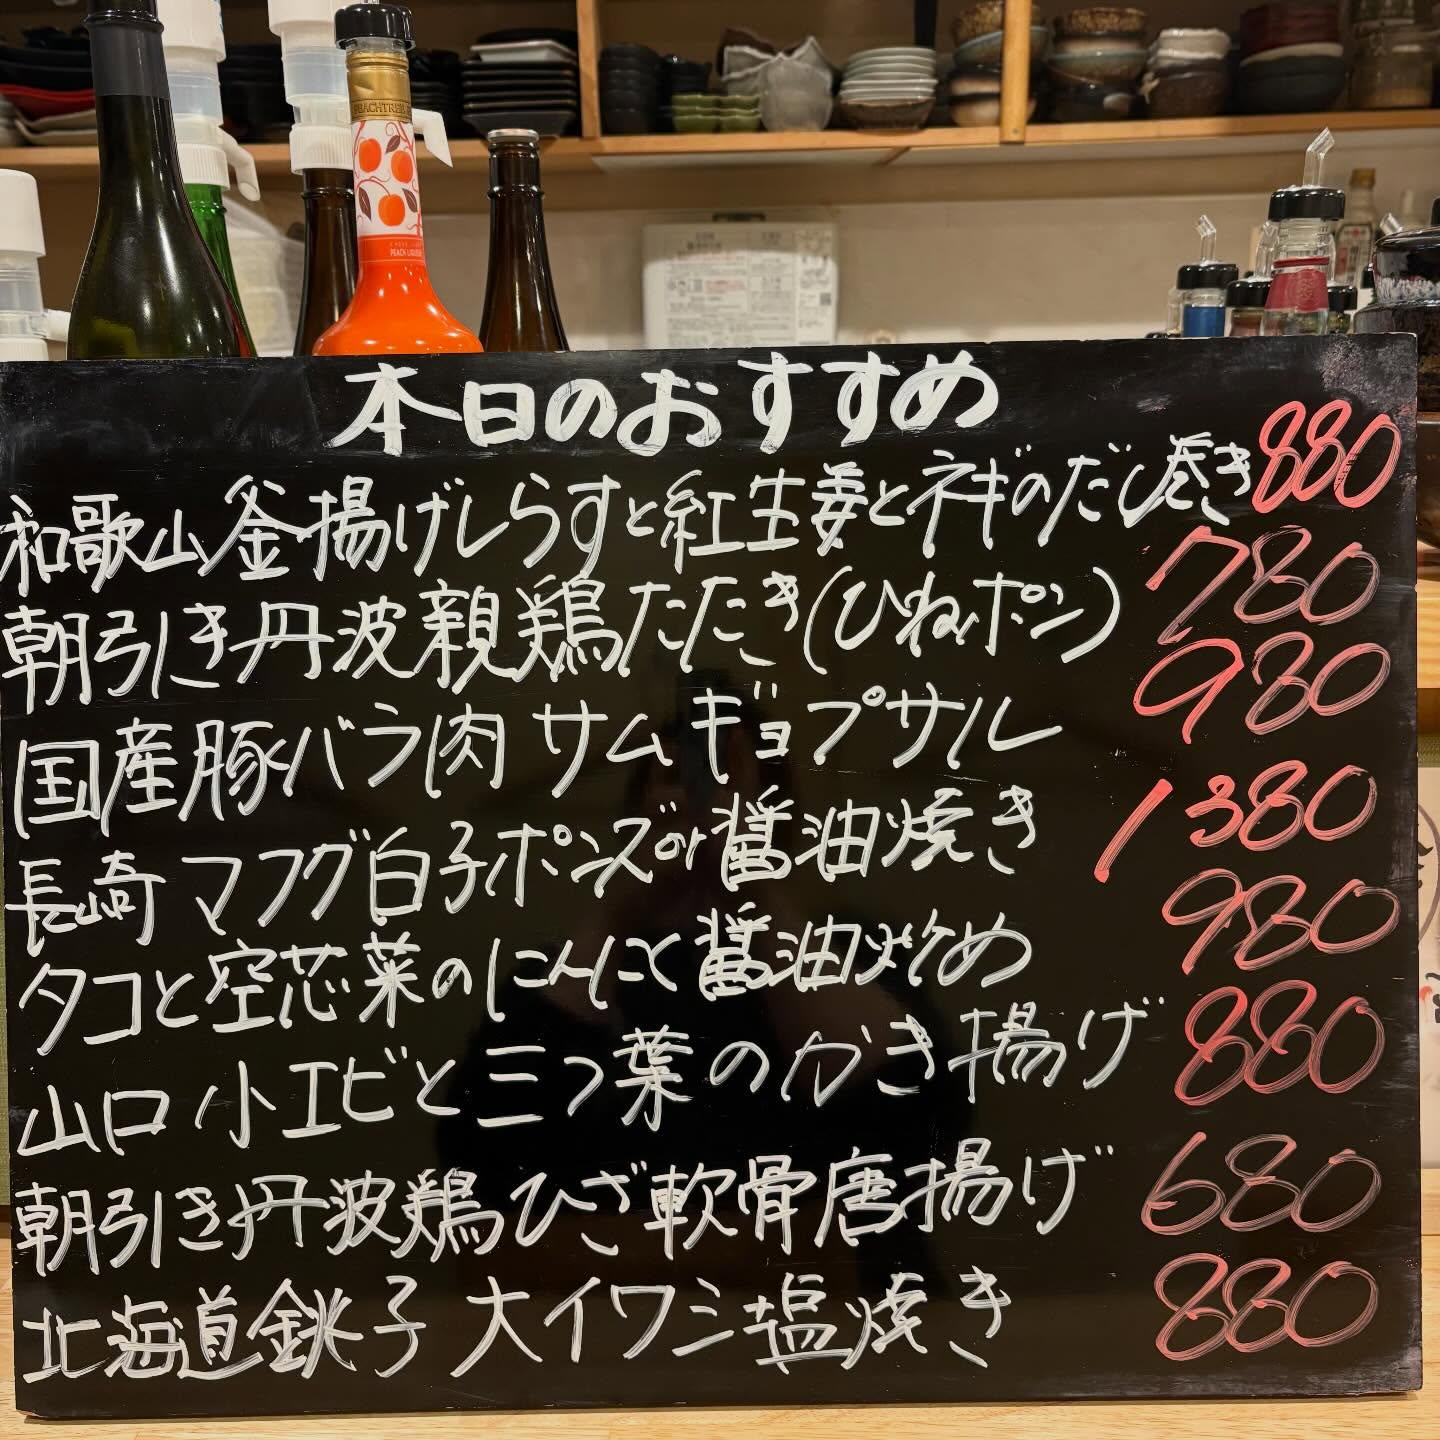 PEACHTREE
PEACH LIQUEUR
本日のおすすめ
和歌山釜揚げしらすと紅生姜とネギのだし巻き 880
朝引き丹波親鶏たたき(ひねポン) 780
国産豚バラ肉 サムギョプサル 980
長崎 マフグ白子ポンズor醤油焼き 1380
タコと空芯菜のにんにく醤油炒め 980
山口 小エビと三つ葉のかき揚げ 880
朝引き丹波鶏ひざ軟骨唐揚げ 680
北海道銚子 大イワシ塩焼き 880